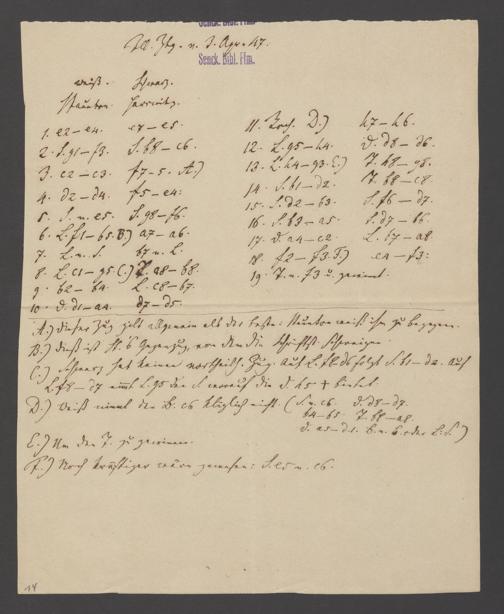 Senck. Bibl. Ffm.
v. 3. Apr. 47.
Senck. Bibl. Ffm.
weiß. Schwarz.
Staunton. Harrwitz.
1. e2 – e4. e7 – e5.
2. S. g1 – f3. S. b8 – c6.
3. c2 – c3. f7 – 5. A.)
4. d2 – d4. f5 – e4:
5. S. n. e5. S. g8 – f6.
6. L. f1 – b5. B.) a7 – a6.
7. L. n. S. b7 n. L.
8. L. c1 – g5 C.) T. a8 – b8.
9. b2 – b4. L. c8 – b7.
10. D. d1 – a4. d7 – d5.
11. Roch. D.) h7 – h6.
12. L. g5 – h4. D. d8 – d6.
13. L. h4 – g3. E.) T. h8 – g8.
14. S. b1 – d2. T. b8 – c8.
15. S. d2 – b3. S. f6 – d7.
16. S. b3 – a5. S. d7 – b6.
17. D. a4 – c2. L. b7 – a8.
18. f2 – f3. F.) e4 – f3:
19. T. n. f3 u. gewinnt.
A.) dieser Zug gilt allgemein als der beste: Staunton weiß ihm zu begegnen.
B.) dieß ist Gegenzug, von dem die schweigen.
C.) Schwarz hat keinen vortheilh. Zug. Auf L. f8. d6 folgt S. b1 – d2. Auf
L. f8 – d7 nimmt S. g5 den S. worauf die D. h5 + bietet.
D.) Weiß nimmt den B. c6 klüglich nicht (S. n. c6. D. d8 – d7.
b4 – b5 T. b8 – a8.
D. a5 – d1. B. n. B. oder L. S.)
E.) Um den T. zu gewinnen.
F.) Noch kräftiger wäre gewesen: S. e5 n. c6.
14